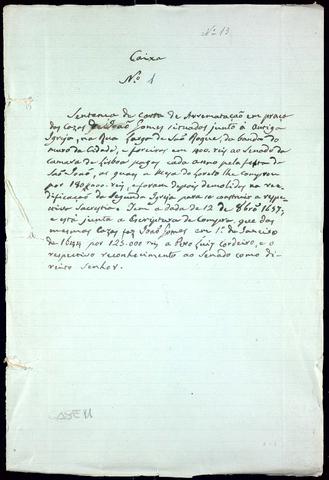 No 13
Caixa
No 1
Sentença de Carta de Arrematação em praça
das cazas de João Gomes situadas junto á antiga
Igreja, na Rua Larga de São Roque, da banda do
muro da Cidade, e foreiras em 400. reis ao Senado da
Camara de Lisboa pagos cada anno pela festa de
São João, as quaes a Meza do Loreto lhe comprou
por 190$000. reis, e foram depois demolidas na ree-
dificação da segunda Igreja para se construir a respe-
ctiva Sacristia. Tem a data de 12 de 8bro 1657;
e está junta a Escriptura de Compra, que das
mesmas cazas fez João Gomes em 1.o de Janeiro
de 1644 por 125.000 reis a Pero Luiz Cordeiro, e o
respectivo reconhecimento ao Senado como di-
reito Senhor.